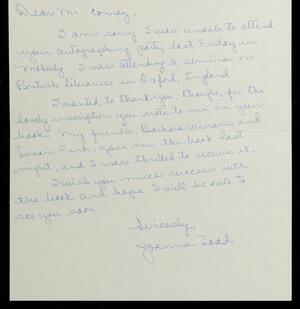 Dear Mr Conroy,
I am sorry I was unable to attend
your autographing party last Friday in
I was attending a seminar on
British libraries in Oxford, England
I wanted to thank you, though, for the
lovely inscription you wrote to me in your
book. My friends, Barbara Winans and
Susan Fink, gave me the book last
night, and I was thrilled to receive it.
I wish you much success with
the book and hope I will be able to
see you soon.
Sincerely,
Joanna Todd